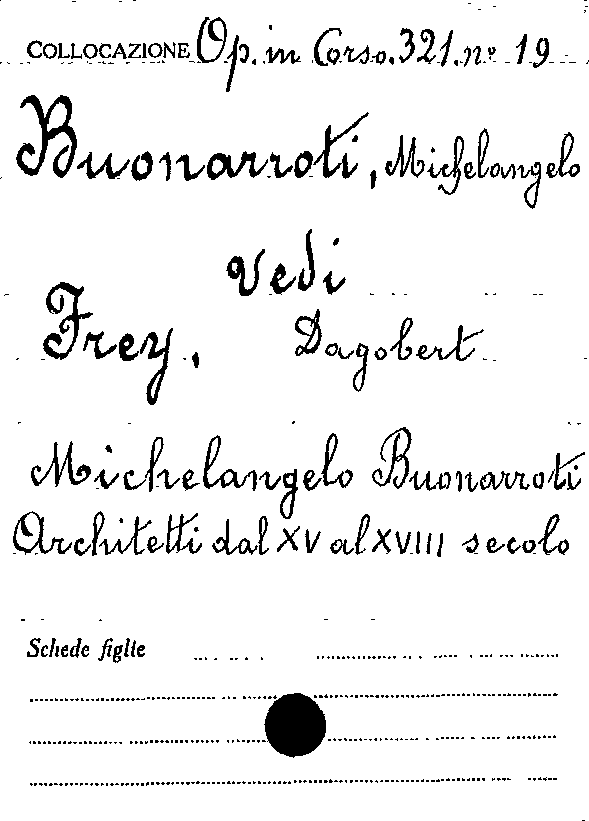 COLLOCAZIONE Op. in Corso. 321. nº 19
Buonarroti, Michelangelo
vedi
Frey, Dagobert
Michelangelo Buonarroti
Architetti dal XV al XVIII secolo
Schede figlie